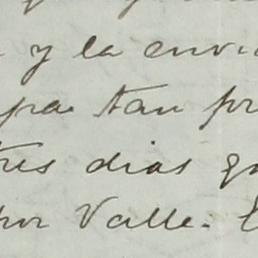 y la envi
tan pr
tres dias q
por Valle.